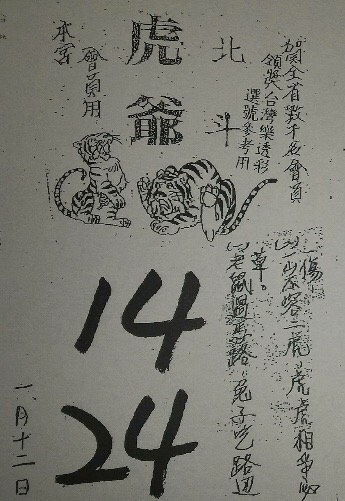 賀全省數千名會員
領獎台灣樂透彩
選號參考用
北斗
虎爺
會員用
本宮
(一)老鼠過馬路,兔子吃路边
草。
(二)一山不容二虎,虎虎相爭必
一傷
14
24
月十二日